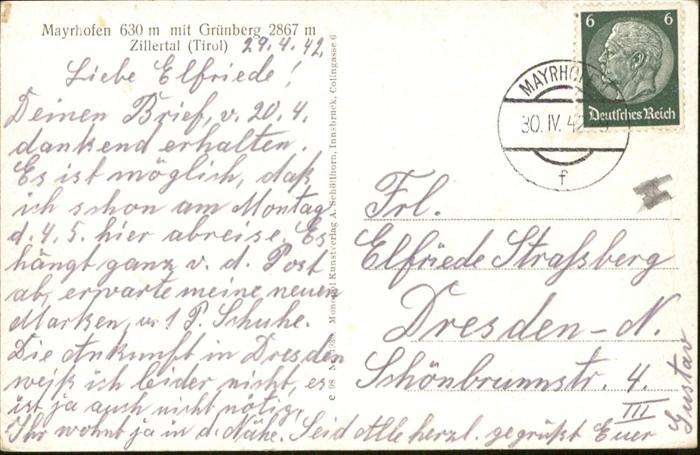 Mayrhofen 630 m mit Grünberg 2867 m
Zillertal (Tirol)
29.4.42.
Liebe Elfriede!
Deinen Brief, v. 20.4.
dankend erhalten.
Es ist möglich, daß
ich schon am Montag
d. 4.5. hier abreise. Es
hängt ganz v. d. Post
ab, erwarte meine neuen
Marken, u. 1 P. Schuhe.
Die Ankunft in Dresden
weiß ich leider nicht, es
ist ja auch nicht nötig,
Ihr wohnt ja in d. Nähe. Seid Alle herzl. gegrüßt Euer
Gustav
Monopol Kunstverlag A. Schöllhorn, Innsbruck, Colingasse 6
6 6
Deutsches Reich
MAYRHOFEN
30. IV. 42
f
Frl.
Elfriede Straßberg
Dresden-N.
Schönbrunnstr. 4.
III